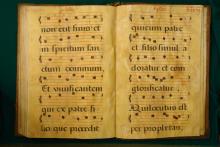 non erit finis et
in spiritum san
ctum dominum,
Et vivificantem
qui ex patre fi
lio que procedit
qui cum patre
et filio simul a
doratur et con
glorificatur
Qui locutus est
per prophetas,